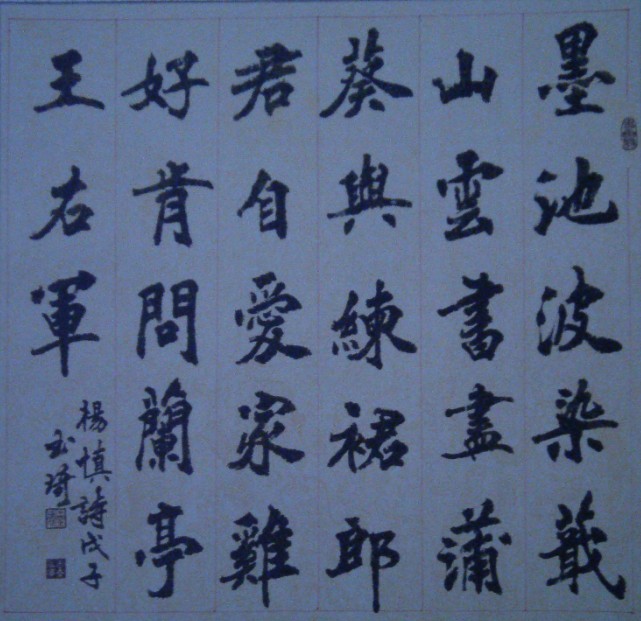 墨池波染蕺
山雲書盡蒲
葵與練裙郎
君自愛家雞
好肯問蘭亭
王右軍
楊慎詩戊子
玉琦